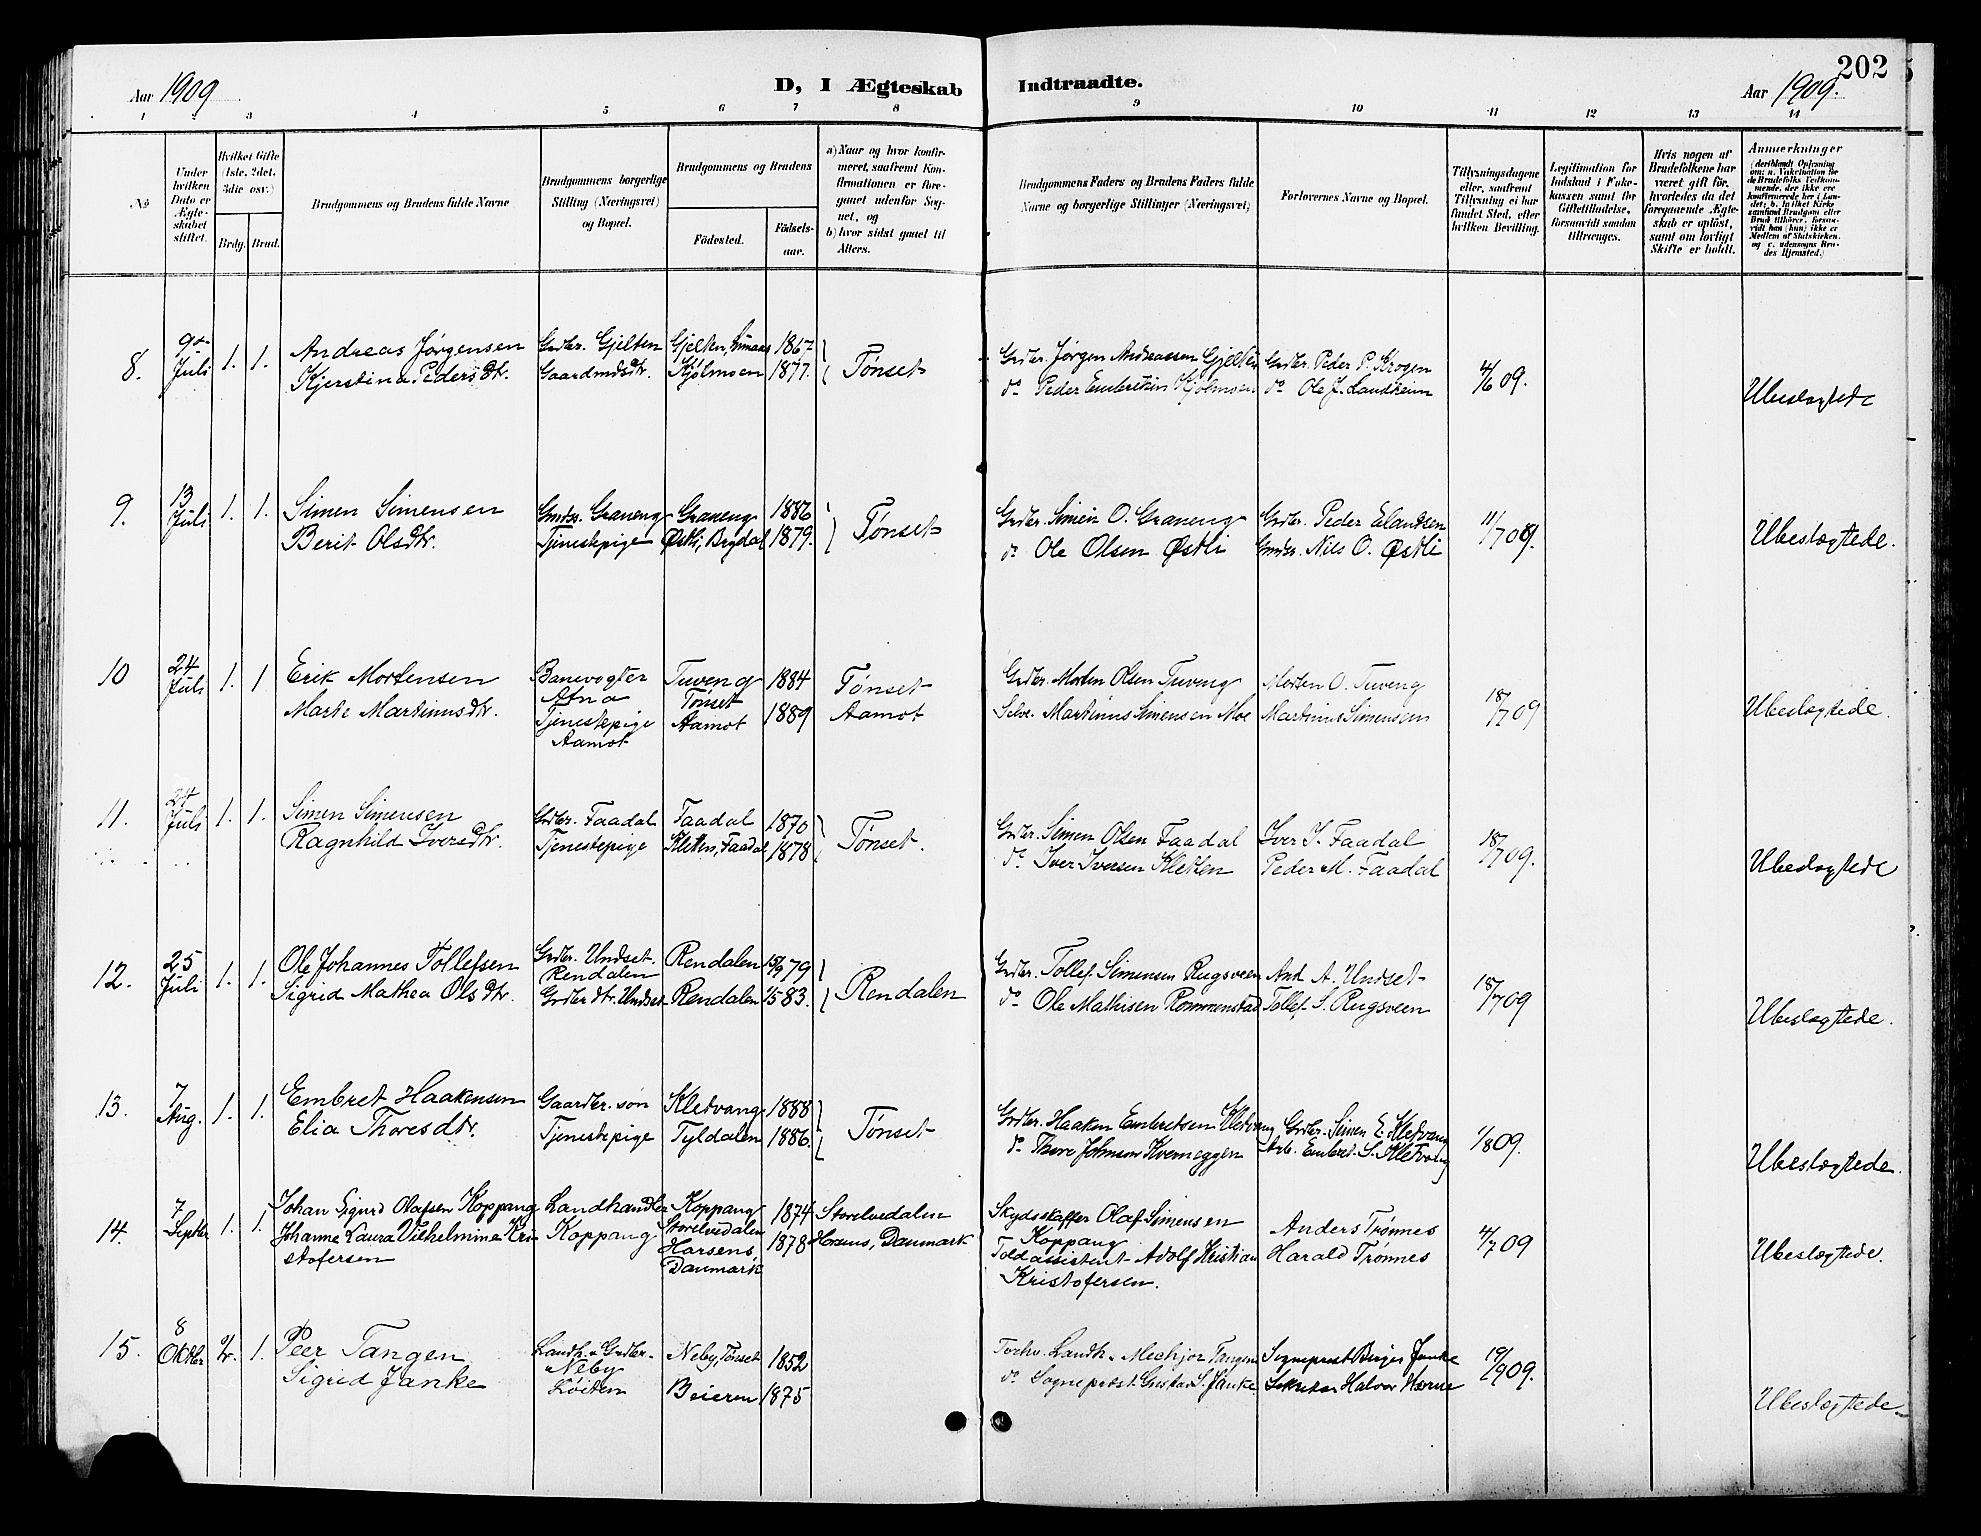 202
Aar 1909
D, I Ægteskab Indtraadte.
Aar 1909.
1 2 3 4 5 6 7 8 9 10 11 12 13 14
No
Under hvilken Dato er Ægteskabet stiftet.
Hvilket Gifte (1ste, 2det, 3die osv.)
Brdg. Brud.
Brudgommens og Brudens fulde Navne
Brudgommens borgerlige Stilling (Næringsvei) og Bopæl.
Brudgommens og Brudens
Fødested.
Fødselsaar.
a) Naar og hvor konfirmeret, saafremt Konfirmationen er foregaaet udenfor Sognet, og
b) hvor sidst gaaet til Alters.
Brudgommens Faders og Brudens Faders fulde Navne og borgerlige Stillinger (Næringsvei)
Forlovernes Navne og Bopæl.
Tillysningsdagene eller, saafremt Tillysning ei har fundet Sted, efter hvilken Bevilling.
Legitimation for Indskud i Enkekassen samt for Giftetilladelse, forsaavidt saadan tiltrænges.
Hvis nogen af Brudefolkene har været gift før, hvorledes da det foregaaende Ægteskab er opløst, samt om lovligt Skifte er holdt.
Anmærkninger
8. 9de Juli 1. 1. Andreas Jørgensen Grdbr. Gjelten Gjelten, 1867 Tønset Grdbr. Jørgen Andreassen Gjelten Grdbr. Peder P. Krogen 4/6 09. Ubeslægtede
Kjerstina Pedersdtr. Gaardmdsdtr. Kjølmoen 1877. do Peder Embretsen Kjølmoen do Ole J. Landheim
9. 13 Juli 1. 1. Simen Simensen Graneng Graneng 1886 Tønset Grdbr. Simen O. Graneng Grdbr. Peder Elandsen 11/7 09. Ubeslægtede.
Berit Olsdtr. Tjenestepige Østli, Brydal 1879. do Ole Olsen Østli Nils O. Østli
10 24 Juli 1. 1 Erik Mortensen Banevogter Atna Tuveng Tønset 1884 Tønset Grdbr. Morten Olsen Tuveng Morten O. Tuveng 18/7 09 Ubeslægtede.
Marte Martinusdtr. Tjenestepige Aamot Aamot 1889 Aamot Selve. Martinus Simensen Moe Martinus Simensen
11. 24 Juli 1. 1. Simen Simensen Grdbr. Faadal Faadal 1870 Tønset. Grdbr. Simen Olsen Faadal Iver I. Faadal 18/7 09. Ubeslægtede
Ragnhild Iversdtr. Tjenestepige Kletten, Faadal 1878 do Iver Iversen Kletten Peder M. Faadal
12. 25 Juli 1. 1. Ole Johannes Tollefsen Grdbr. Undset. Rendalen Rendalen 15/9 79 Rendalen Grdbr. Tollef Simensen Rugsveen And A. Undset 18/7 09 Ubeslægtede.
Sigrid Mathea Olsdtr. Grdbr dtr. Undset Rendalen 1/5 83. do Ole Mathisen Rommenstad Tollef S. Rugsveen
13. 7 Aug. 1. 1. Embret Haakensen Gaardbr. søn Kletvang 1888 Tønset Grdbr. Haaken Embretsen Kletvang Grdbr. Simen E. Kletvang 1/8 09. Ubeslægtede.
Elia Thoresdtr. Tjenestepige Tyldalen 1886. do Thore Johnsen Kverneggen Arb. Embret S. Kletvang
14. 7 Septbr 1. 1. Johan Sigurd Olafsen Koppang Landhandler Koppang Koppang Storelvedalen 1874 Storelvedalen Skydsskaffer Olaf Simensen Koppang Anders Trønnes 4/7 09 Ubeslægtede.
Johanne Laura Vilhelmine Kristofersen Horsens Danmark 1878 Horsens, Danmark Toldassistent Adolf Kristian Kristofersen. Harald Trønnes
15. 8 Oktbr 2. 1. Peer Tangen Landh. & Grdbr. Neby Neby, Tønset 1852 Landh. Melchjor Tangen Sogneprest Birger Janke 19/9 09. Ubeslægtede
Sigrid Janke Løiten Beieren 1875 do Sogneprest Gustav S. Janke. Halvor Hærne